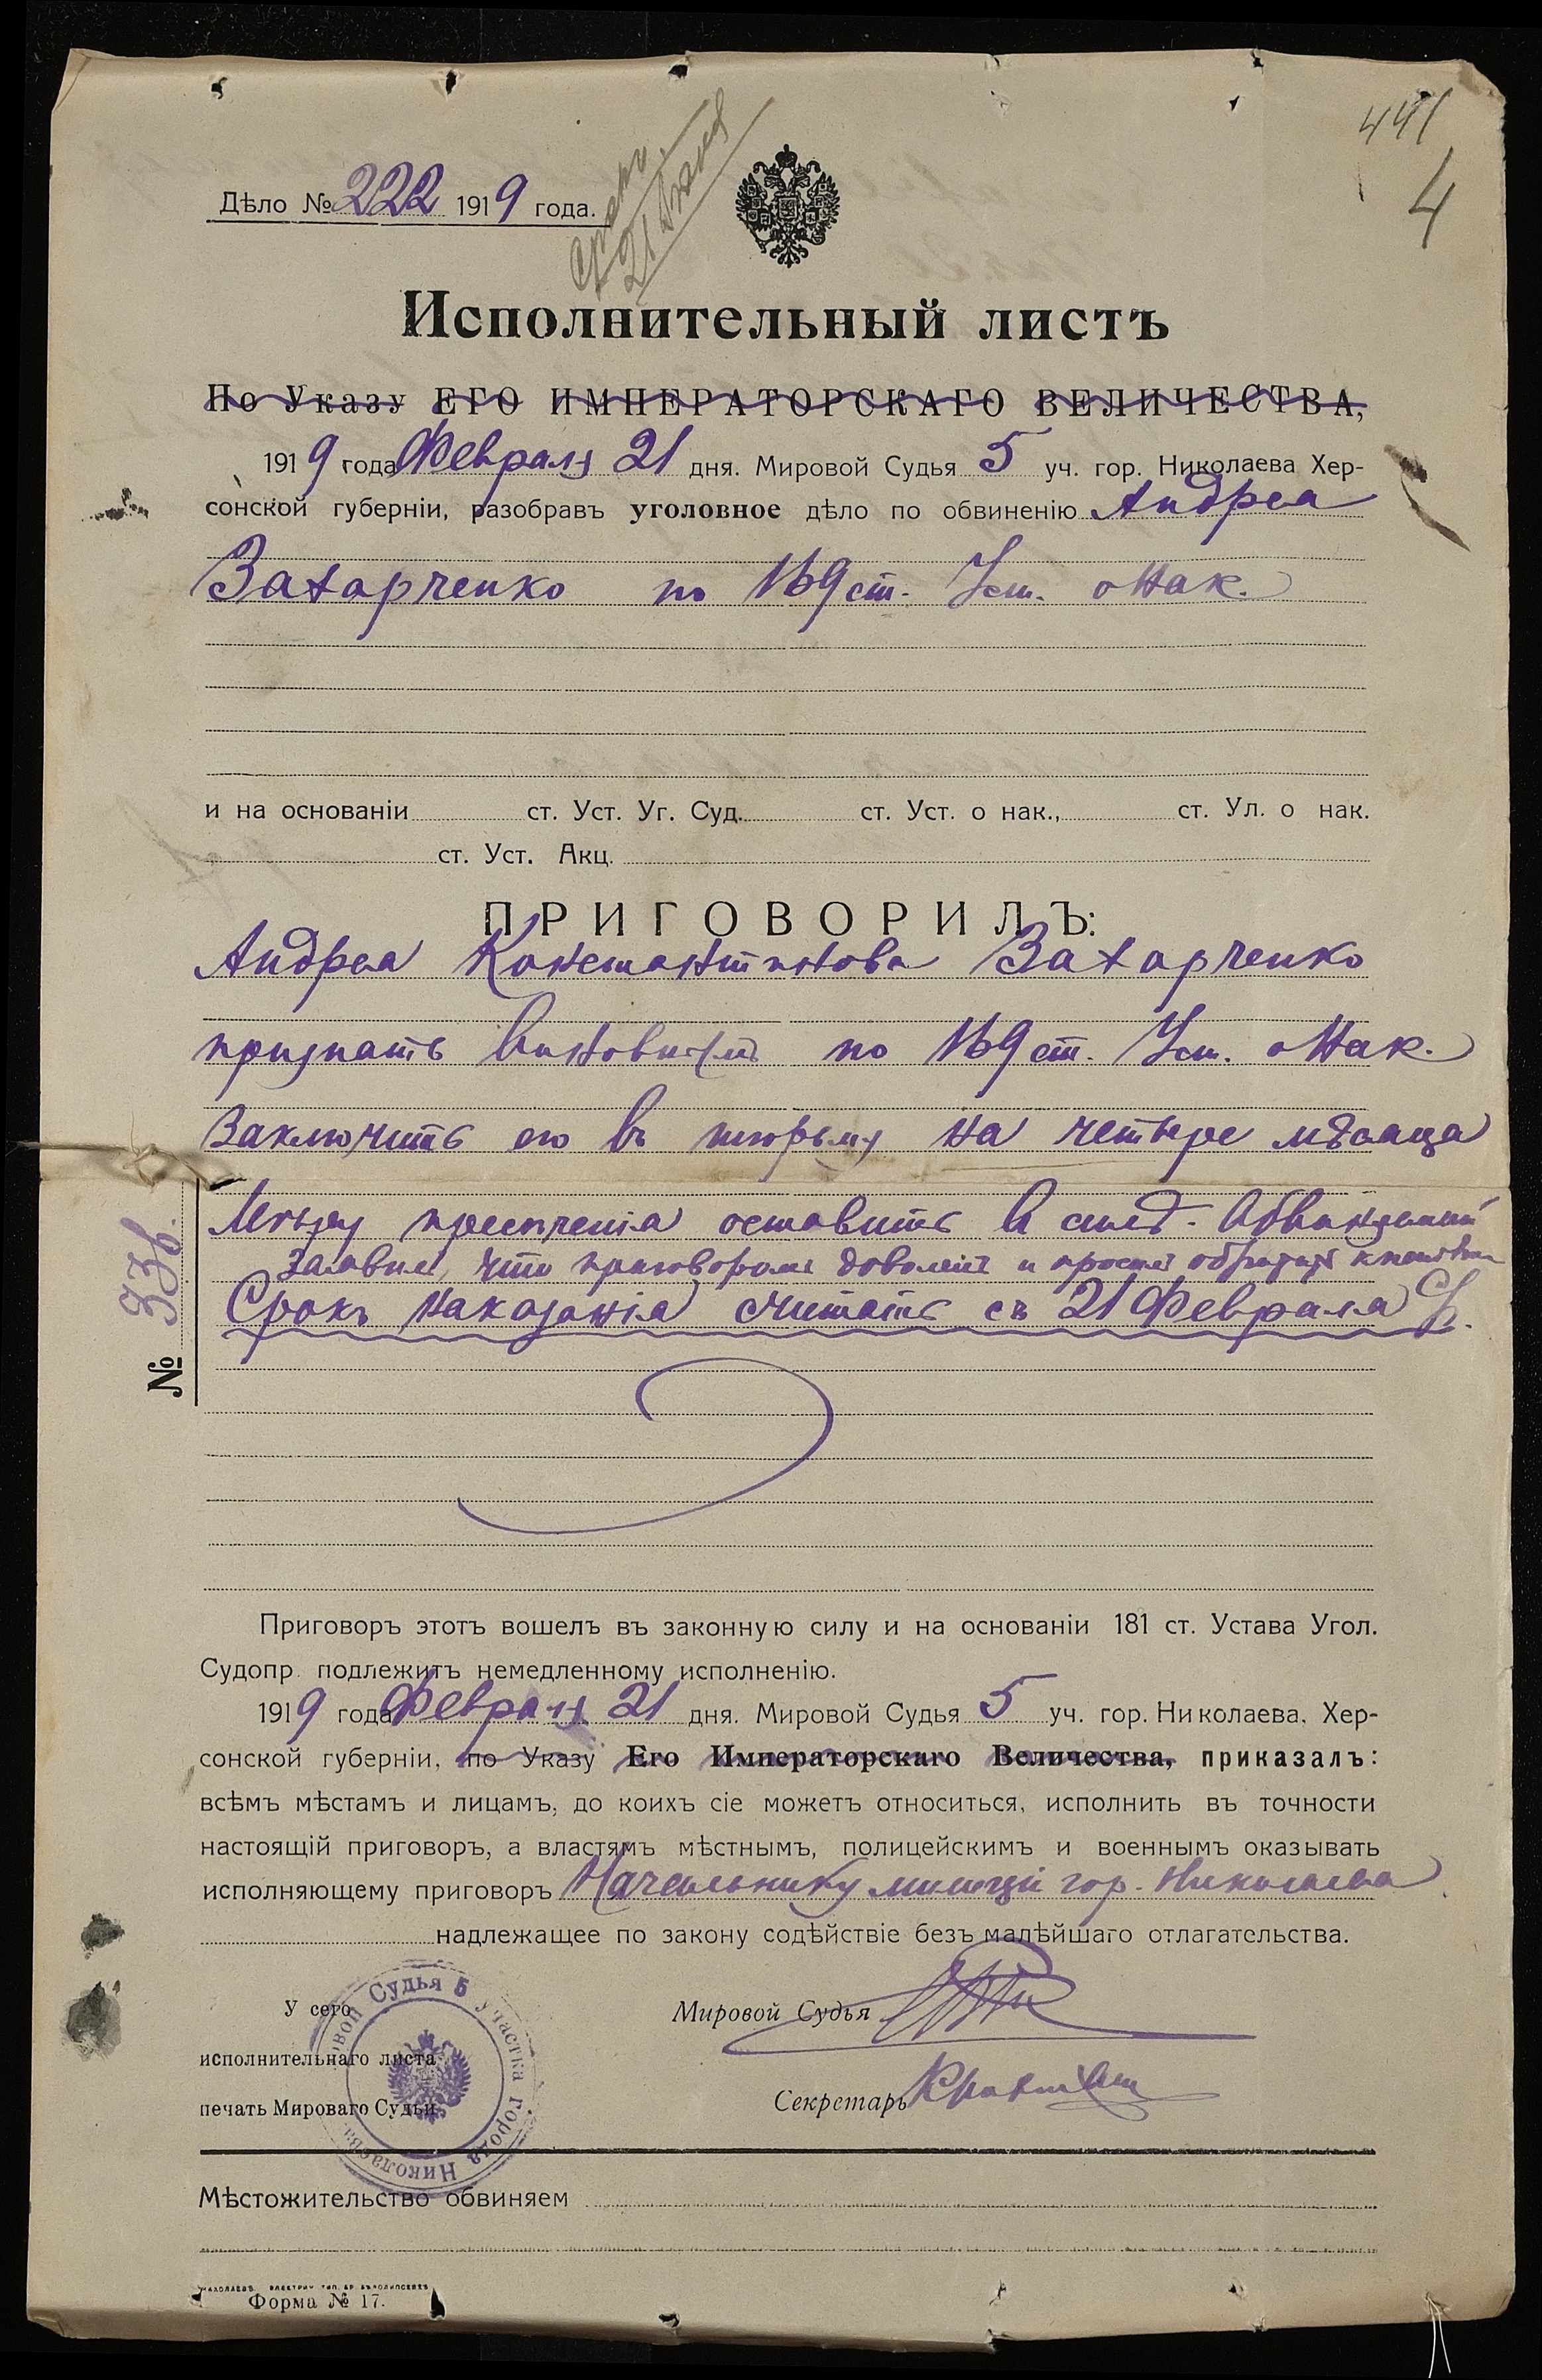 441
4
Дѣло № 222 1919 года.
Срокъ
21 Іюня
Исполнительный листъ
По Указу ЕГО ИМПЕРАТОРСКАГО ВЕЛИЧЕСТВА,
1919 года Февраля 21 дня. Мировой Судья 5 уч. гор. Николаева Хер-
сонской губерніи, разобравъ уголовное дѣло по обвиненію Андрея
Захарченко по 169 ст. Уст. о Нак.
и на основаніи ст. Уст. Уг. Суд. ст. Уст. о нак., ст. Ул. о нак.
ст. Уст. Акц.
ПРИГОВОРИЛЪ:
Андрея Константинова Захарченко
признать виновнымъ по 169 ст. Уст. о Нак.
Заключить его въ тюрьму на четыре мѣсяца
Мѣру пресѣченія оставить в силѣ. Обвиняемый
заявилъ, что приговоромъ доволенъ и проситъ обратить к
Срокъ наказанія считать съ 21 Февраля
№ 336.
Приговоръ этотъ вошелъ въ законную силу и на основаніи 181 ст. Устава Угол.
Судопр. подлежитъ немедленному исполненію.
1919 года Февраля 21 дня. Мировой Судья 5 уч. гор. Николаева, Хер-
сонской губерніи, по Указу Его Императорскаго Величества, приказалъ:
всѣмъ мѣстамъ и лицамъ, до коихъ сіе можетъ относиться, исполнить въ точности
настоящій приговоръ, а властямъ мѣстнымъ, полицейскимъ и военнымъ оказывать
исполняющему приговоръ Начальнику милиціи гор. Николаева
надлежащее по закону содѣйствіе безъ малѣйшаго отлагательства.
У сего
исполнительнаго листа
печать Мироваго Судьи
Мировой Судья 5 участка города Николаева
Мировой Судья
Секретарь
Мѣстожительство обвиняем
Форма № 17.